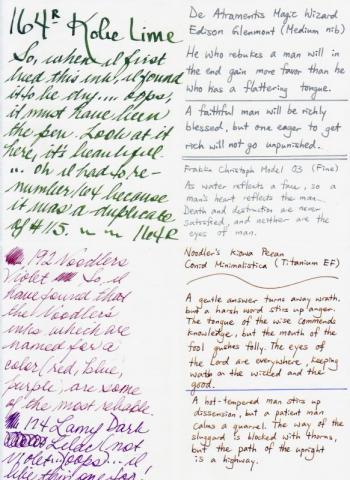 164R Kobe Lime
So, when I first
tried this ink, I found
it to be dry... oops,
it must have been
the pen. Look at it
here, it's beautiful.
... oh I had to re-
number 164 because
it was a duplicate
of #115. ~ ~ 164R
192 Noodlers
Violet So, I
have found that
the Noodlers
inks which are
named for a
color (red, blue,
purple) are some
of the most reliable.
174 Lamy Dark
Lilac (not
Violet...oops... I
like this one too!
De Atramentis Magic Wizard
Edison Glenmont (Medium nib)
He who rebukes a man will in
the end gain more favor than he
who has a flattering tongue.
A faithful man will be richly
blessed, but one eager to get
rich will not go unpunished.
Franklin Christoph Model 03 (Fine)
As water reflects a face, so a
man's heart reflects the man.
Death and destruction are never
satisfied, and neither are the
eyes of man.
Noodler's Kiowa Pecan
Conid Minimalistica (Titanium EF)
A gentle answer turns away wrath,
but a harsh word stirs up anger.
The tongue of the wise commends
knowledge, but the mouth of the
fool gushes folly. The eyes of
the Lord are everywhere, keeping
watch on the wicked and the
good.
A hot-tempered man stirs up
dissension, but a patient man
calms a quarrel. The way of the
sluggard is blocked with thorns,
but the path of the upright
is a highway.